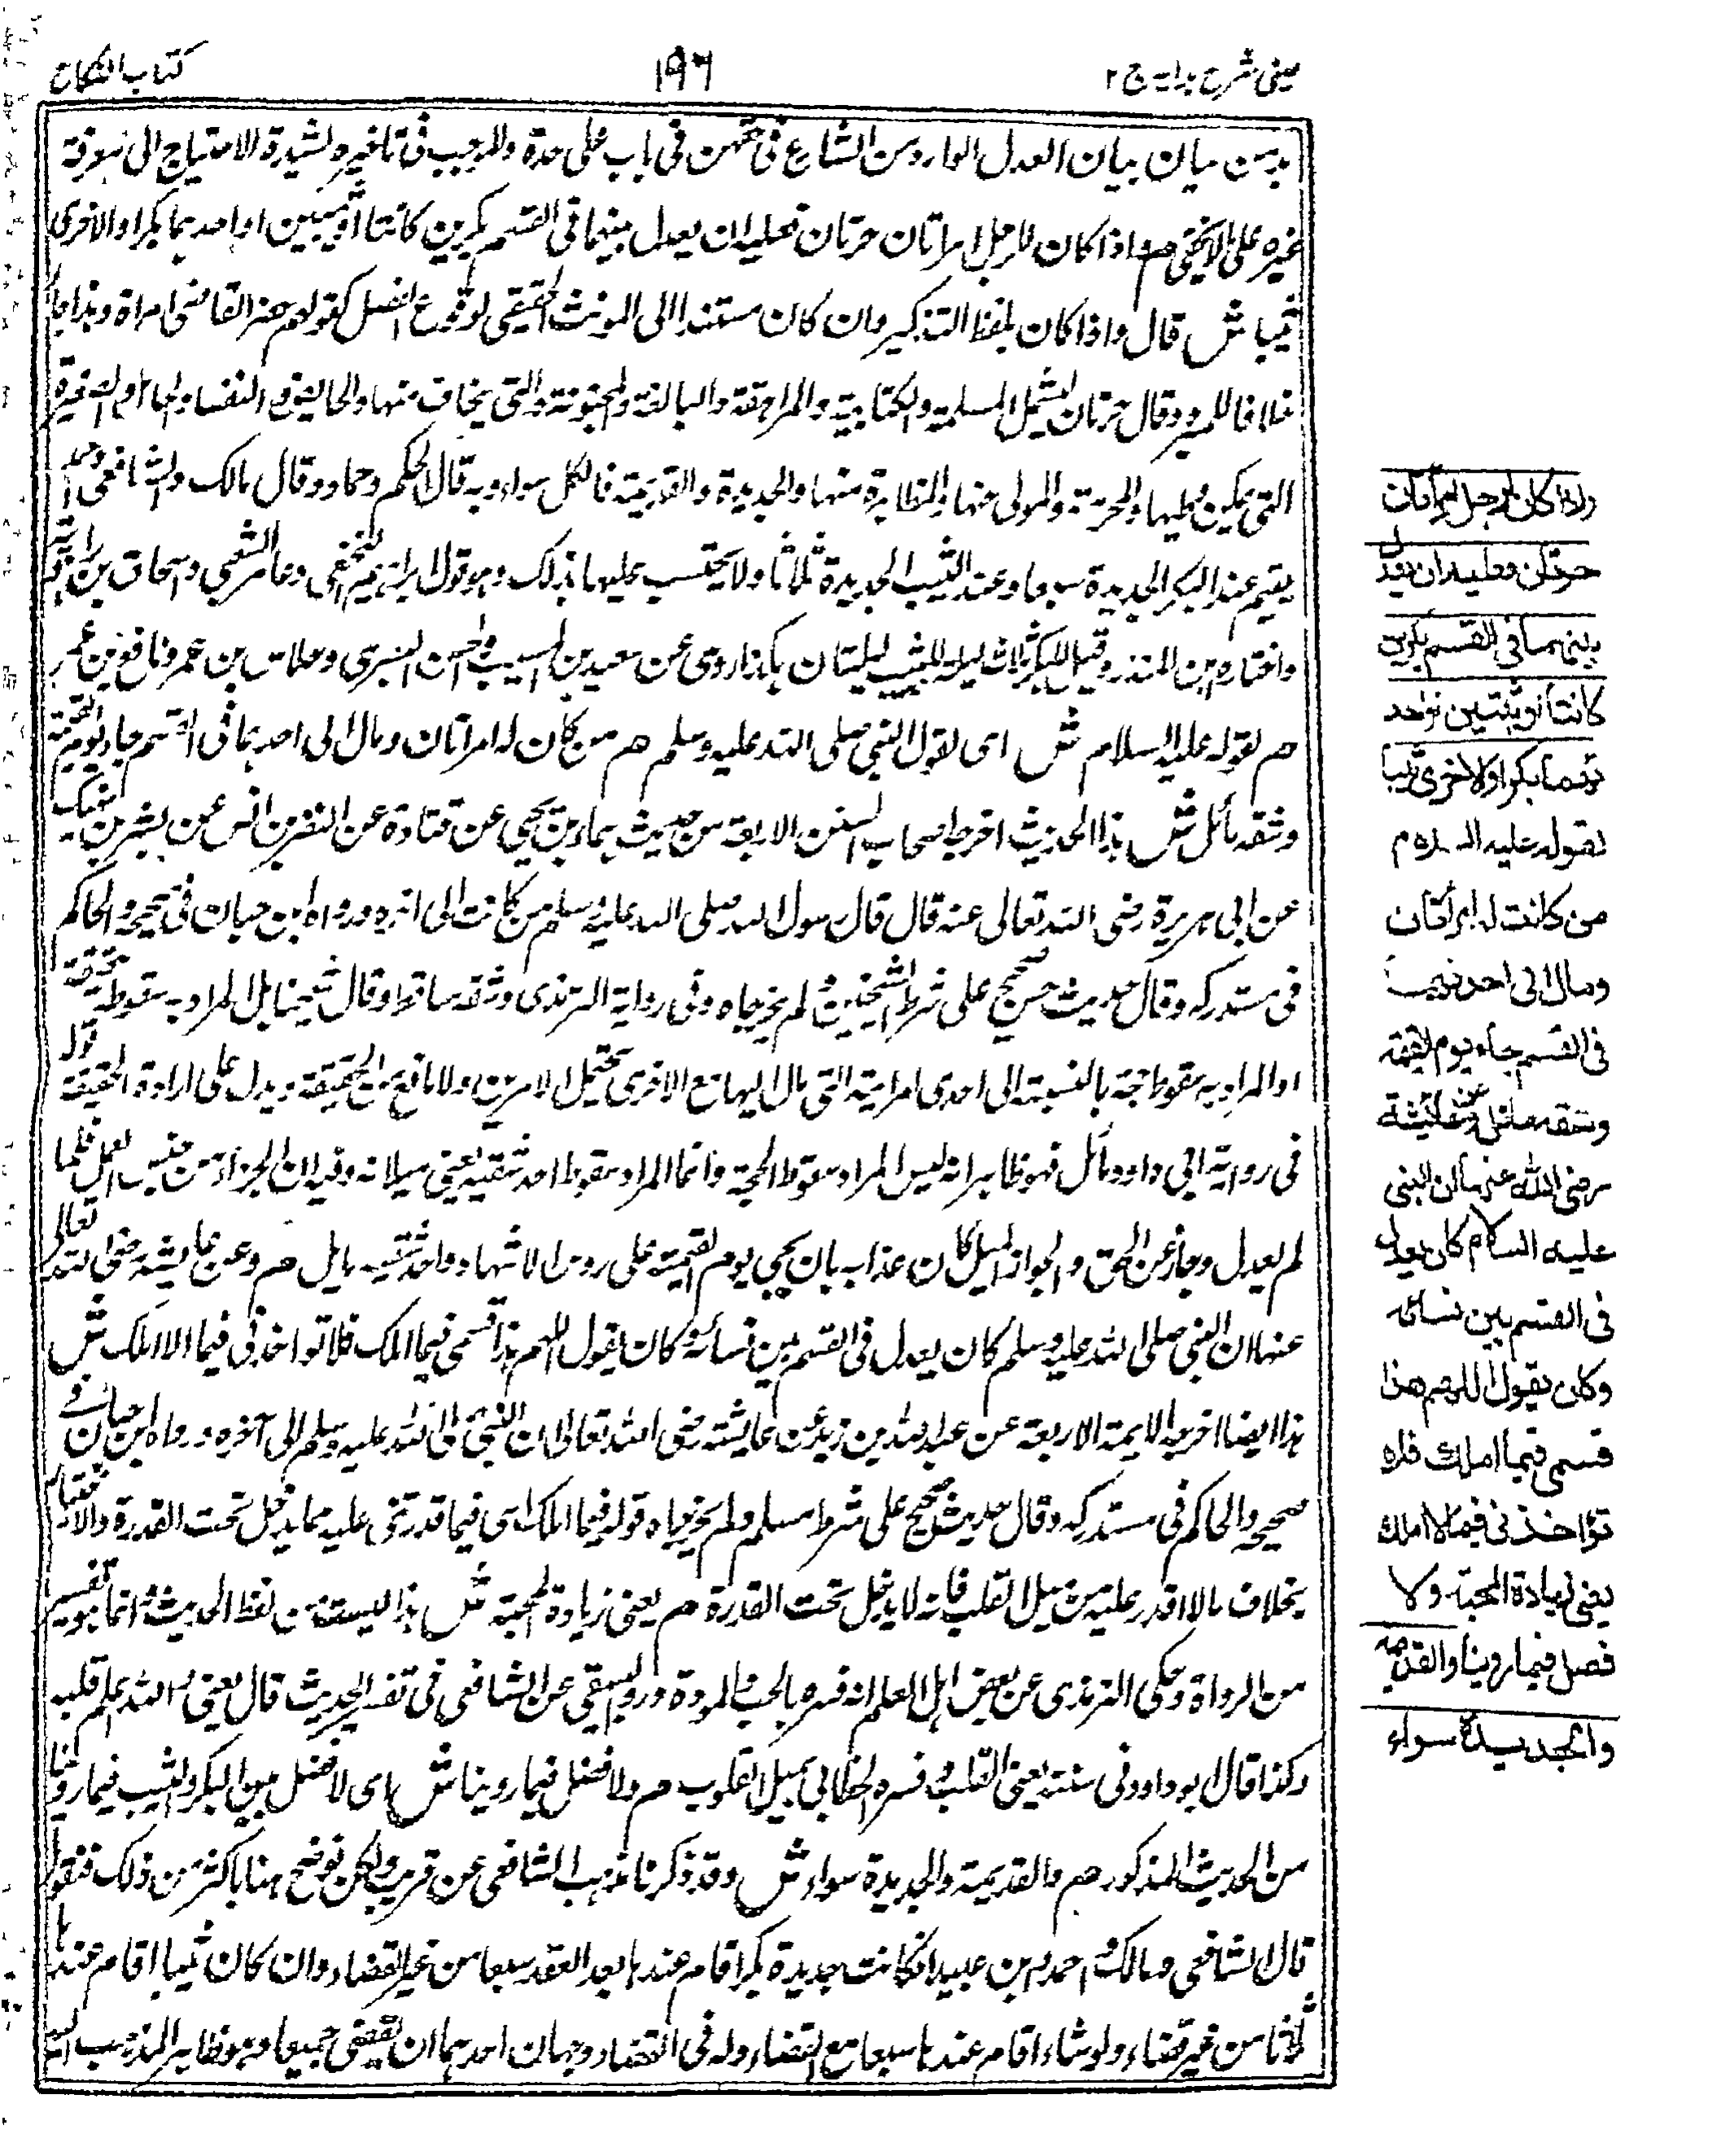 عینی شرح ہدایہ ج ۲
۱۹۶
کتاب النکاح
بد من بیان بیان العدل الوارد من الشارع فی حقهن فی باب علی حدة والموجب فی تاخیره لشدة الاحتیاج الی معرفة
غیره علی ما لا یخفی م واذا کان للرجل امراتان حرتان فعلیه ان یعدل بینهما فی القسم بکرین کانتا او ثیبین او احدیهما بکرا والاخری
ثیبا ش قال واذا کان بلفظ التذکیر وان کان مستندا الی المونث الحقیقی لوقوع الفصل کقولهم حضر القاضی امراة وهذا
خلافا للمبرد وقال حرتان لیشمل المسلمة والکتابیة والمراهقة والبالغة والمجنونة والتی یخاف منها والحایض والنفساء والحامل والصغیرة
التی یمکن وطیها والمحرمة والمولی منها والمظاهرة منها والجدیدة والقدیمة فالکل سواء وبه قال الحکم وحماد وقال مالک والشافعی واحمد
یقیم عند البکر الجدیدة سبعا وعند الثیب الجدیدة ثلاثا ولا یحتسب علیها بذلک وهو قول ابراهیم النخعی وعامر الشعبی واسحاق بن راهویه
واختاره ابن المنذر وقیل للبکر ثلاث لیلة للثیب لیلتان هکذا روی عن سعید بن المسیب والحسن البصری وخلاس بن عمر ونافع بن عمر
م لقوله علیه السلام ش ای لقول النبی صلی الله علیه وسلم م من کان له امراتان ومال الی احدیهما فی القسم جاء یوم القیمة
وشقه مائل ش هذا الحدیث اخرجه اصحاب السنن الاربعة من حدیث همام بن یحیی عن قتادة عن النضر بن انس عن بشیر بن نهیک
عن ابی هریرة رضی الله تعالی عنه قال قال رسول الله صلی الله علیه وسلم من کانت الی اخره ورواه ابن حبان فی صحیحه والحاکم
فی مستدرکه وقال حدیث صحیح علی شرط الشیخین ولم یخرجاه وفی روایة الترمذی وشقه ساقط وقال شیخنا هل المراد به سقوطه حقیقة
او المراد به سقوط حجة بالنسبة الی احدی امراتیه التی مال الیها مع الاخری تحتمل الامرین ولا مانع من الحقیقة ویدل علی ارادة الحقیقة قوله
فی روایة ابی داود مائل فهو ظاهر انه لیس المراد سقوط الحجة وانما المراد سقوط احد شقیه یعنی میلانه وفیه ان الجزاء من جنس العمل فلما
لم یعدل وجاز عن الحق والجواز المیل کان عذابه بان یجی یوم القیمة علی روس الاشهاد واحد شقیه مایل م وعن عایشة رضی الله تعالی
عنها ان النبی صلی الله علیه وسلم کان یعدل فی القسم بین نسائه وکان یقول اللهم هذا قسمی فیما املک فلا تواخذنی فیما لا املک ش
هذا ایضا اخرجه الایمة الاربعة عن عبد الله بن زید عن عایشة رضی الله تعالی ان النبی صلی الله علیه وسلم الی آخره ورواه ابن حبان فی
صحیحه والحاکم فی مستدرکه وقال حدیث صحیح علی شرط مسلم ولم یخرجاه قوله فیما املک ای فیما قدرتنی علیه مما یدخل تحت القدرة والاختیار
بخلاف ما لا اقدر علیه من میل القلب فانه لا یدخل تحت القدرة م یعنی زیادة المحبة ش هذا لیست من لفظ الحدیث انما هو تفسیر
من الرواة وحکی الترمذی عن بعض اهل العلم انه فسره بالحب والمودة وروی البیهقی عن الشافعی فی تفسیر الحدیث قال یعنی والله اعلم قلبه
وکذا قال ابو داود فی سننه یعنی القلب وفسره الخطابی بمیل القلوب م ولا فصل فیما روینا ش ای لا فصل بین البکر والثیب فیما روینا
من الحدیث المذکور م والقدیمة والجدیدة سواء ش وقد ذکرنا مذهب الشافعی عن قریب ولکن نوضح هنا باکثر من ذلک فنقول
قال الشافعی ومالک واحمد وابن عبید ان کانت جدیدة بکرا اقام عندها بعد العقد سبعا من غیر القضاء وان کان ثیبا اقام عندها
ثلاثا من غیر قضاء ولو شاء اقام عندها سبعا مع القضاء وله فی القضاء وجهان احدهما ان یقضی جمیعا وهو ظاهر المذهب
واذا کان لرجل امرأتان
حرتان فعلیه ان یعدل
بینهما فی القسم بکرین
کانتا او ثیبتین او احد
نهما بکرا والاخری ثیبا
لقوله علیه السلام
من کانت له امرأتان
ومال الی احدیهما
فی القسم جاء یوم القیمة
وشقه مائل وعن عائیشة
رضی الله عنها ان النبی
علیه السلام کان یعدل
فی القسم بین نسائه
وکان یقول اللهم هذا
قسمی فیما املک فلا
تؤاخذنی فیما لا املک
یعنی زیادة المحبة ولا
فصل فیما روینا والقدیمة
والجدیدة سواء